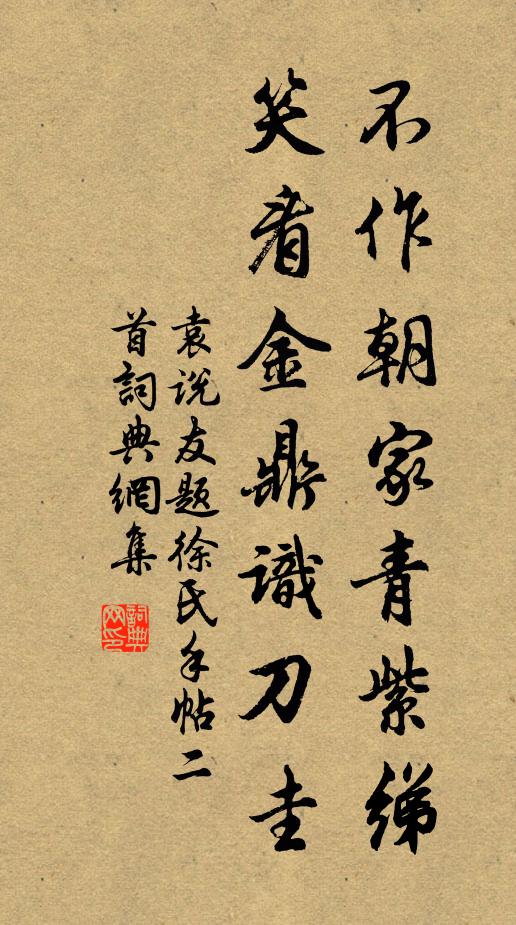 不作朝家青紫綈
笑看金鼎識刀圭
袁说友题徐氏手帖二
首詞典網集
詞典網印